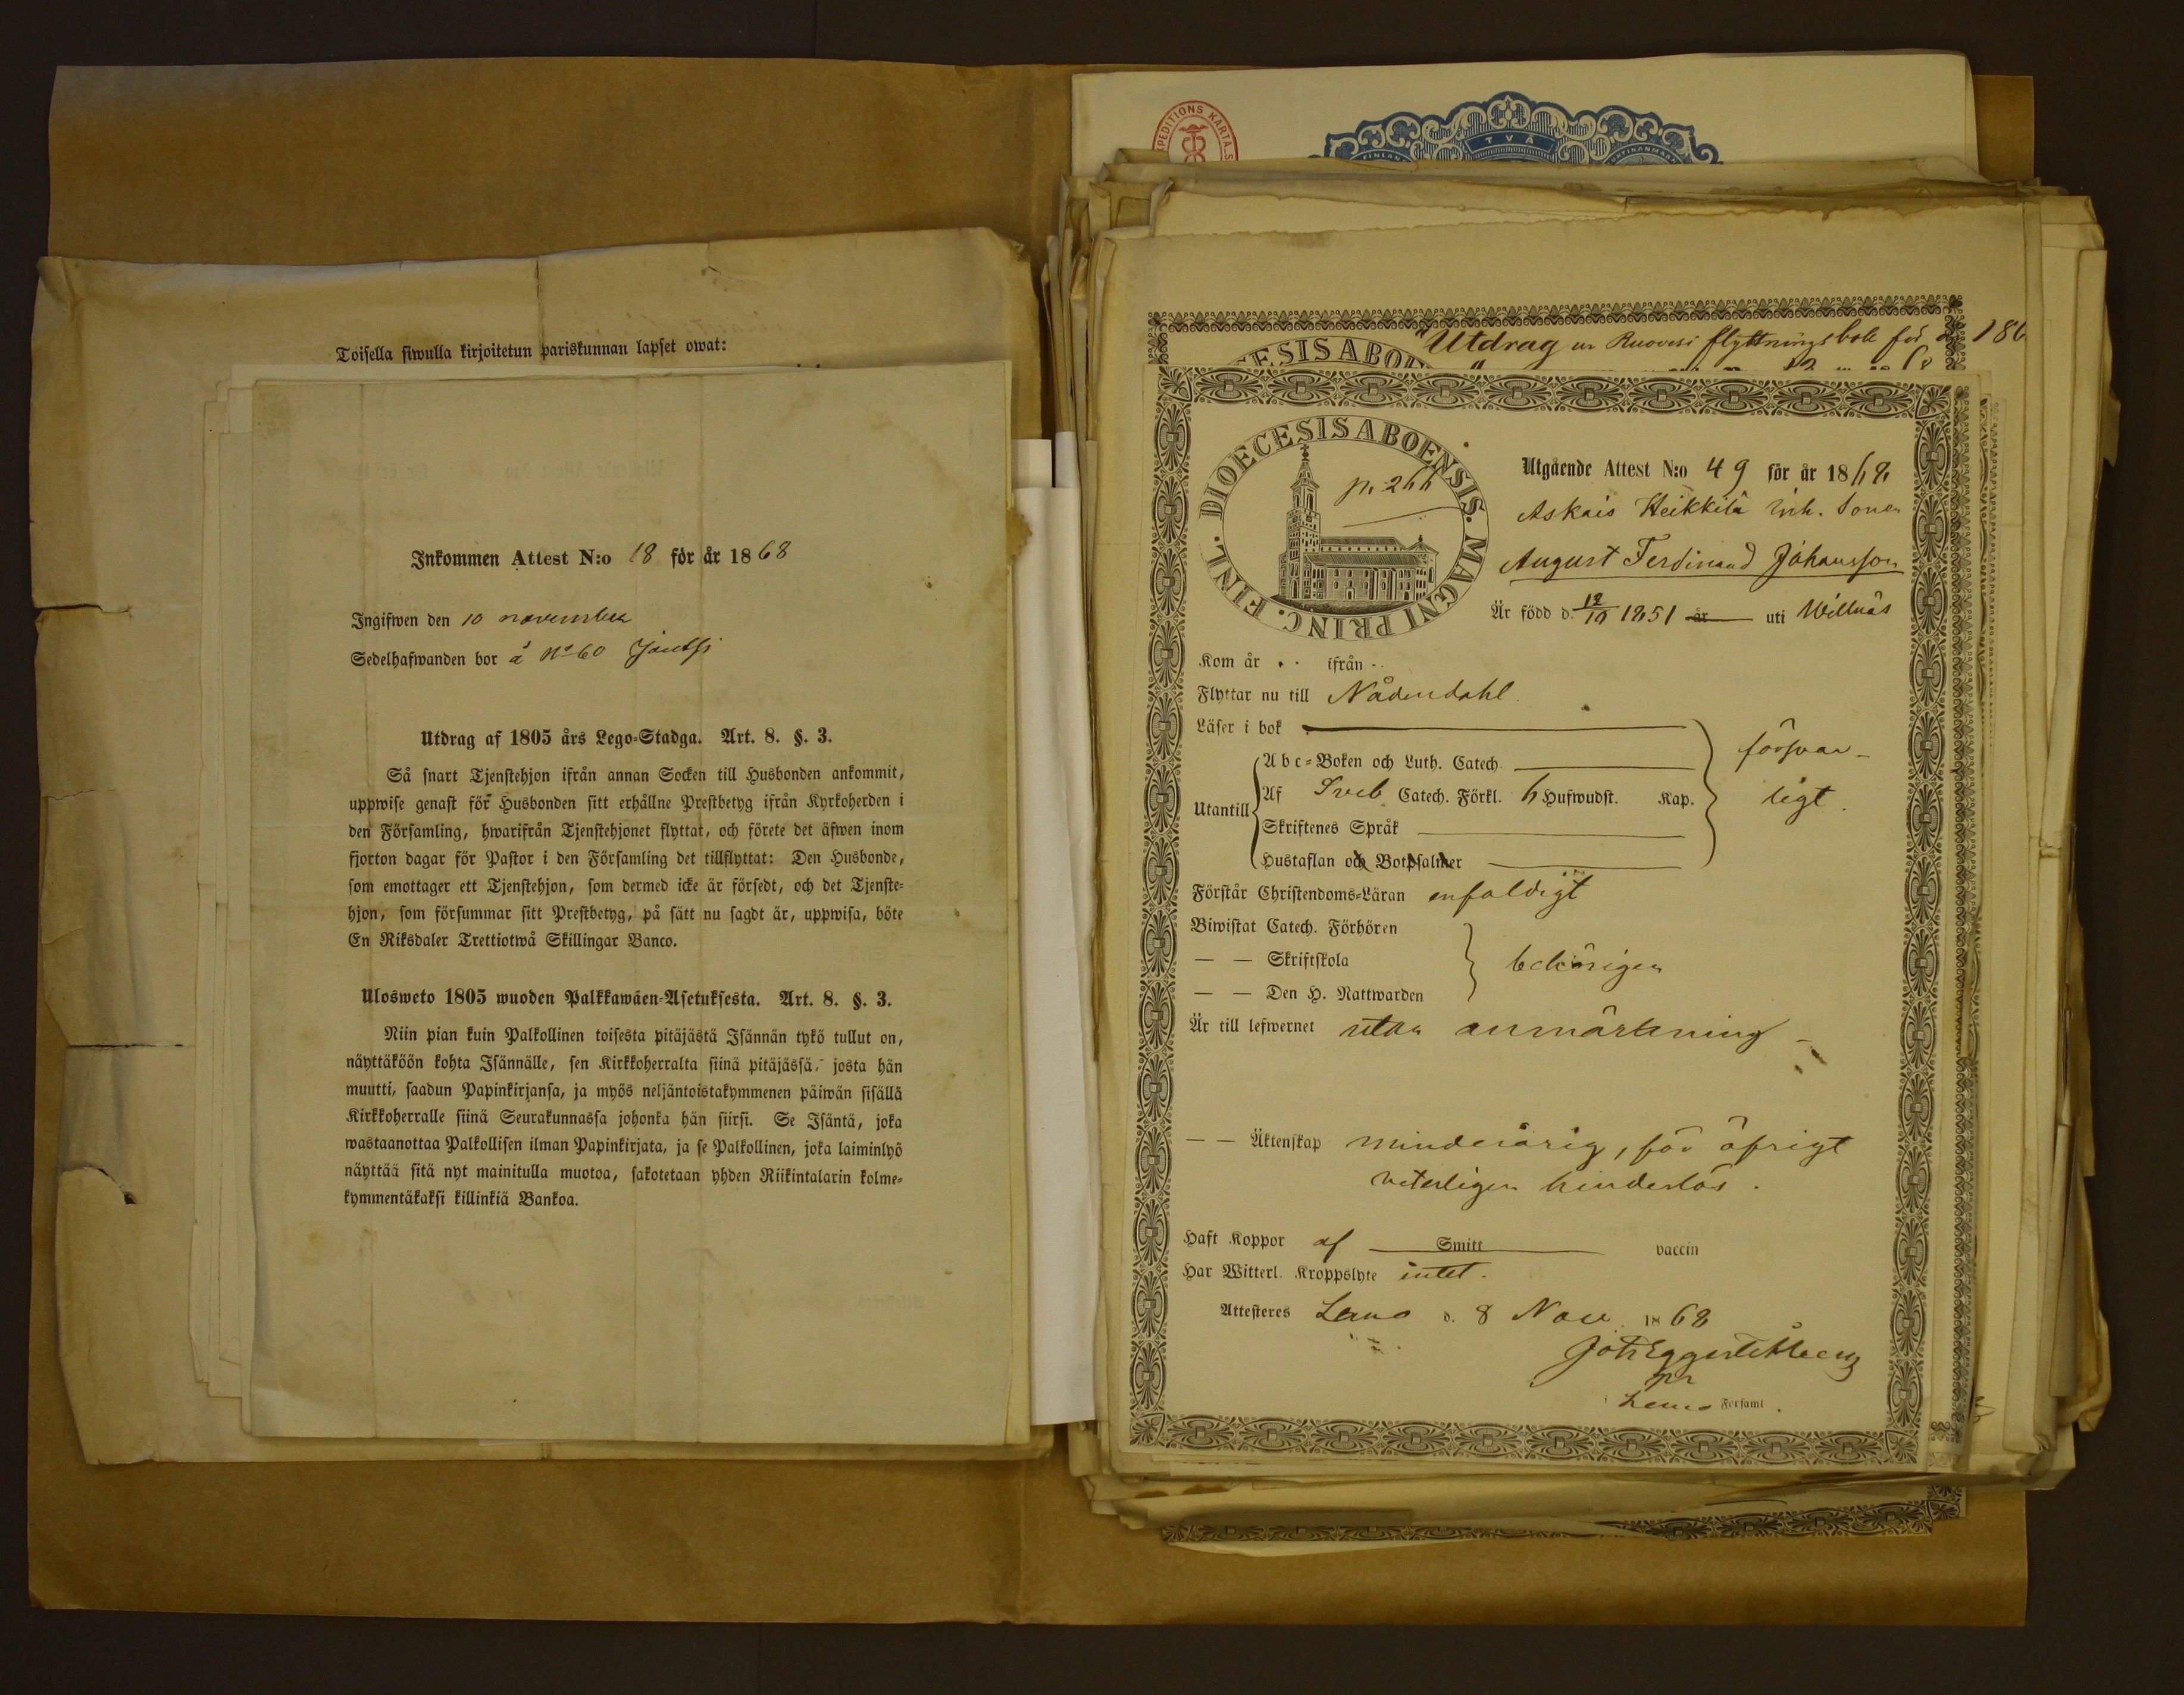 Toisella siwulla kirjoitetun pariskunnan lapset owat:
Inkommen Attest N:o 18 för år 1868
Ingifwen den 10 november
Sedelhafwanden bor å No 60
Utdrag af 1805 års Lego-Stadga. Art. 8. §. 3.
Så snart Tjenstehjon ifrån annan Socken till Husbonden ankommit,
uppwise genast för Husbonden sitt erhållne Prestbetyg ifrån Kyrkoherden i
den Församling, hwarifrån Tjenstehjonet flyttat, och förete det äfwen inom
fjorton dagar för Pastor i den Församling det tillflyttat: Den Husbonde,
som emottager ett Tjenstehjon, som dermed icke är försedt, och det Tjenste-
hjon, som försummar sitt Prestbetyg, på sätt nu sagdt är, uppwisa, böte
En Riksdaler Trettiotwå Skillingar Banco.
Ulosweto 1805 wuoden Palkkawäen-Asetuksesta. Art. 8. §. 3.
Niin pian kuin Palkollinen toisesta pitäjästä Isännän tykö tullut on,
näyttäköön kohta Isännälle, sen Kirkkoherralta siinä pitäjässä, josta hän
muutti, saadun Papinkirjansa, ja myös neljäntoistakymmenen päiwän sisällä
Kirkkoherralle siinä Seurakunnassa johonka hän siirsi. Se Isäntä, joka
wastaanottaa Palkollisen ilman Papinkirjata, ja se Palkollinen, joka laiminlyö
näyttää sitä nyt mainitulla muotoa, sakotetaan yhden Riikintalarin kolme-
kymmentäkaksi killinkiä Bankoa.
PEDITIONS KARTA.S
TVÅ
FINLAN
Utdrag ur Ruovesi flyttningsbok för 186
ESIS ABO
DIOECESIS ABOENSIS. MAGNI PRINC. FINL.
p. 266
Utgående Attest N:o 49 för år 1868
Askais Heikkilä inh. Sonen
August Ferdinand Johansson
Är född d. 12/10 1851 år uti Willnäs
Kom år ifrån
Flyttar nu till Nådendahl.
Läser i bok
försvar-
ligt.
Utantill
Abc-Boken och Luth. Catech.
Af Sveb. Catech. Förkl. 6 Hufwudst. Kap.
Skriftenes Språk
Hustaflan och Botpsalmer
Förstår Christendoms-Läran enfaldigt
Biwistat Catech. Förhören
— — Skriftskola
behörigen
— — Den H. Nattwarden
Är till lefwernet utan anmärkning
— — Äktenskap minderårig, för öfrigt
veterligen hinderlös.
Haft Koppor af Smitt vaccin
Har Witterl. Kroppslyte intet.
Attesteres Lemo d. 8 Nov. 1868
Lemo Forsaml.